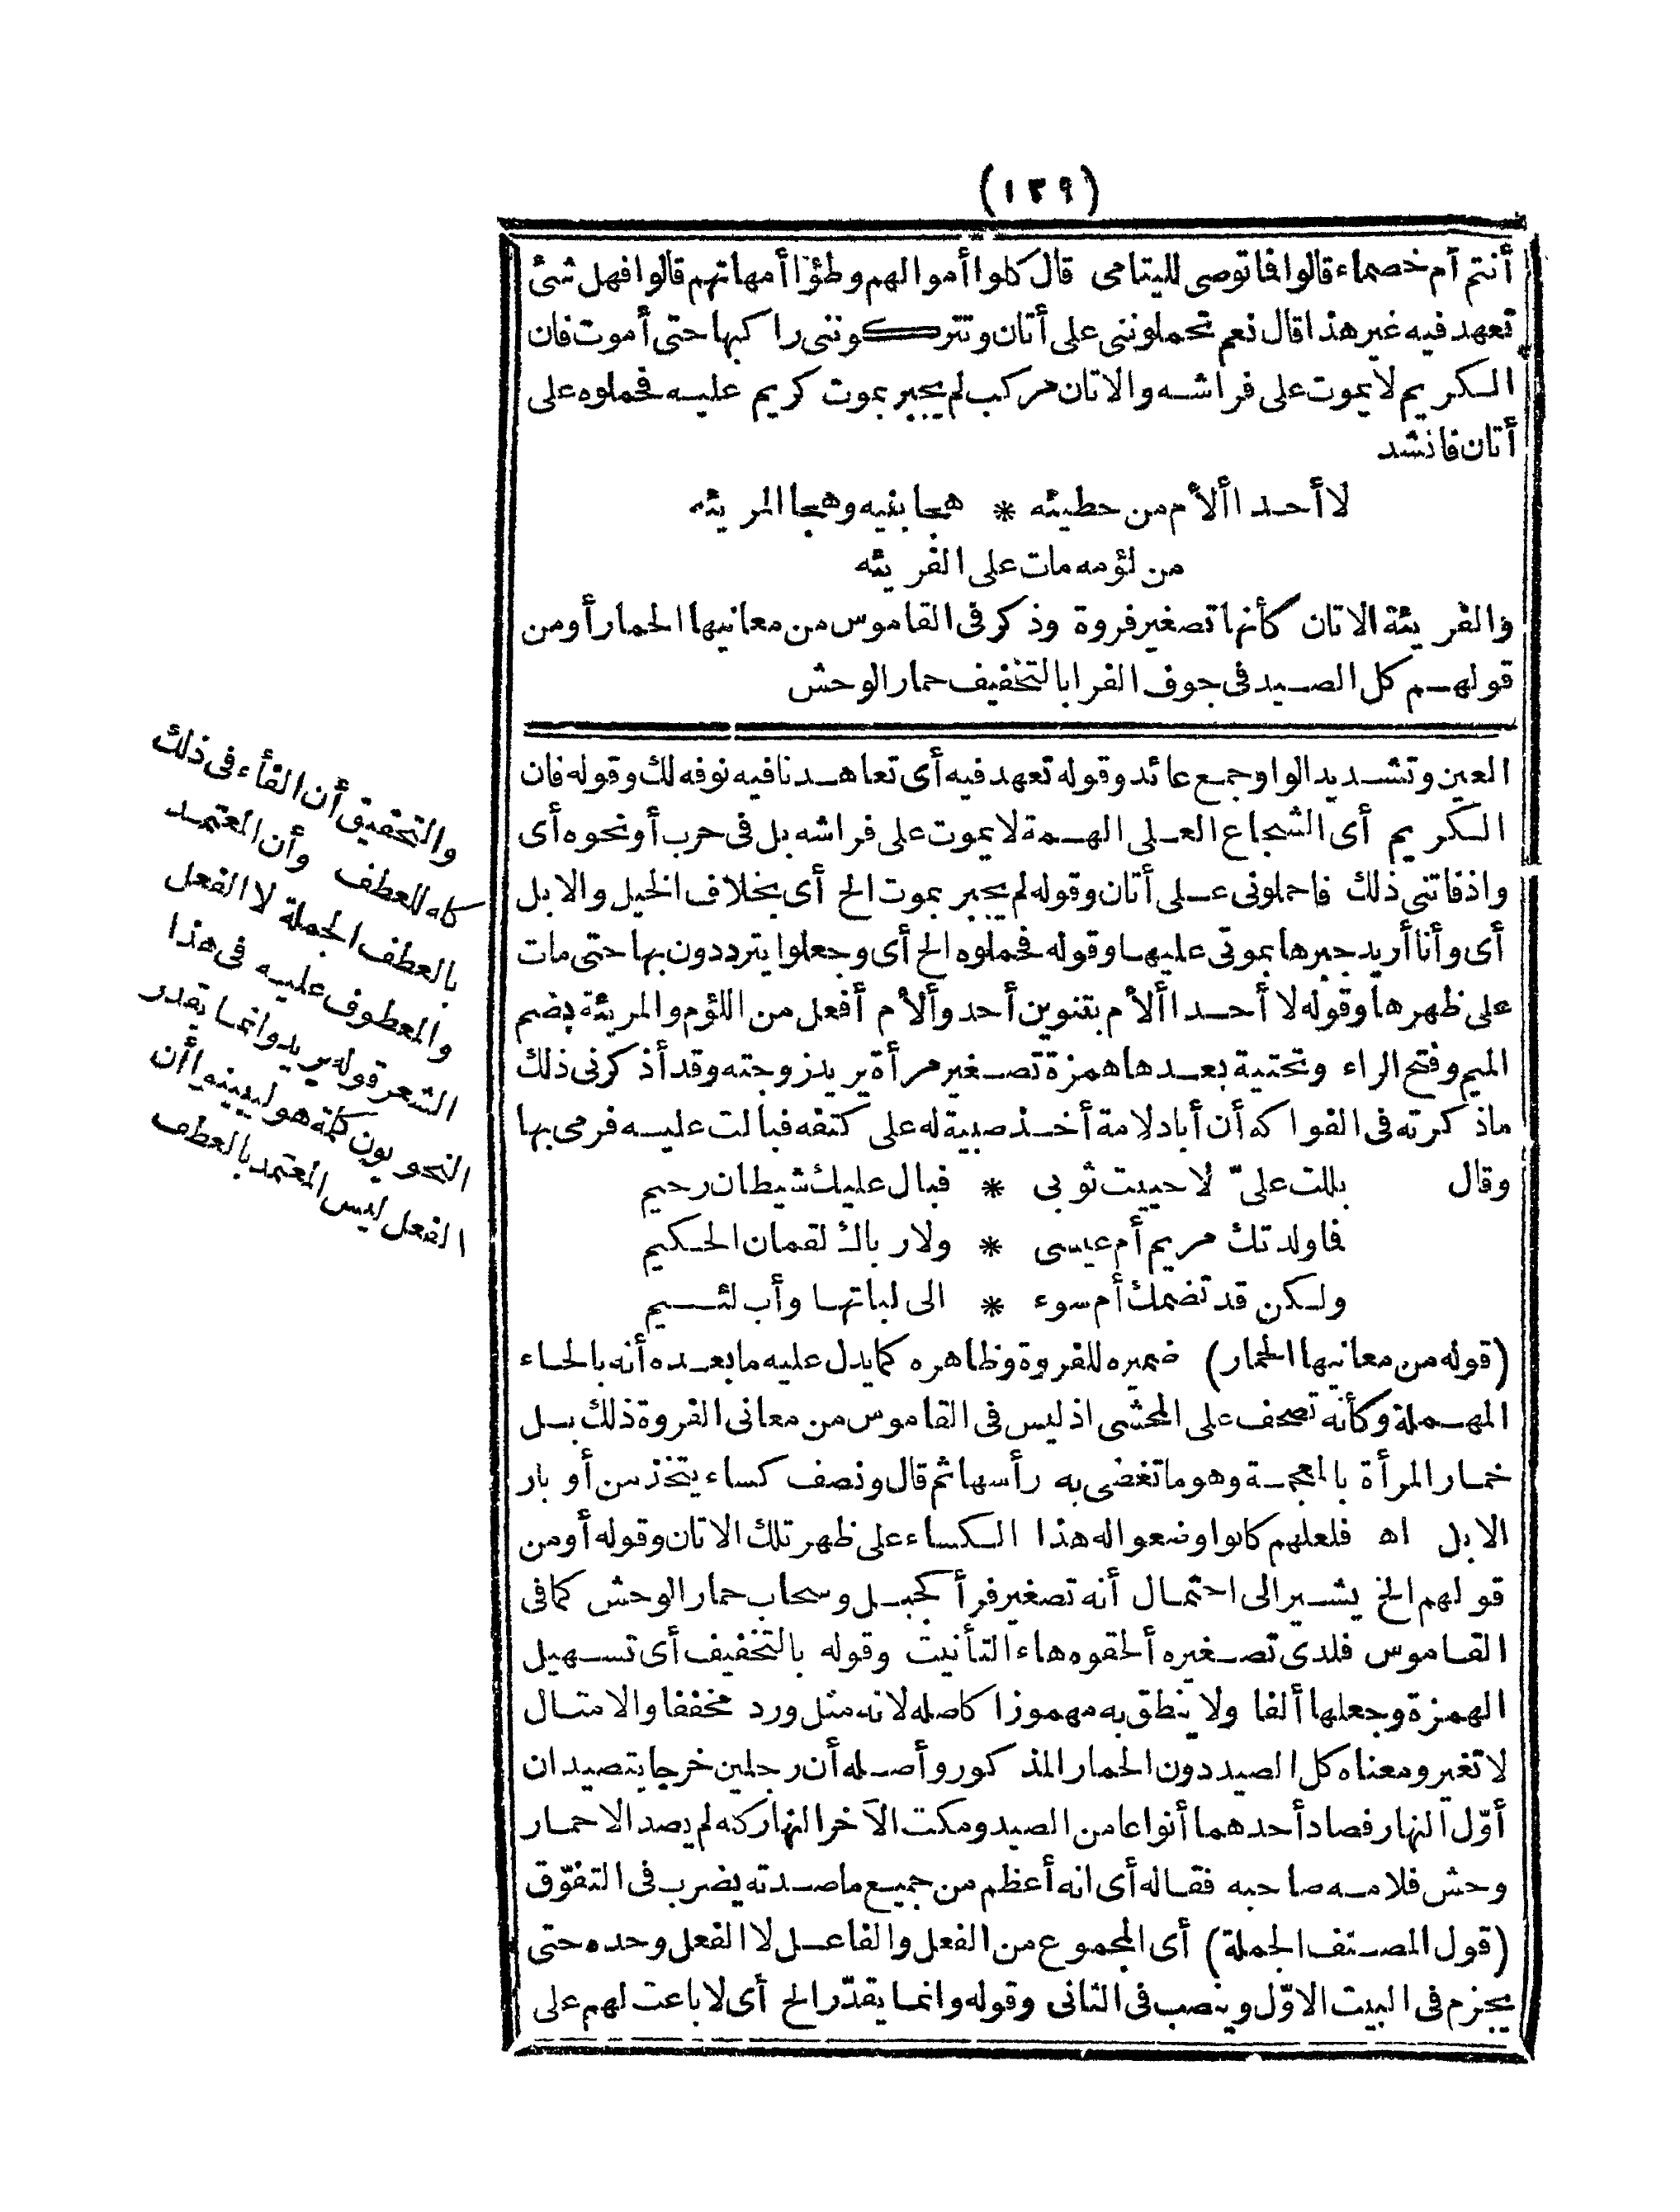 (١٣٩)
أنتم أم خصماء قالوا فما توصى لليتامى قال كلوا أموالهم وطؤا أمهاتهم قالوا فهل شئ
تعهد فيه غير هذا قال نعم تحملوننى على أتان وتتركوننى راكبها حتى أموت فان
الكريم لا يموت على فراشه والاتان مركب لم يجبر بموت كريم عليه فحملوه على
أتان فانشد
لا أحد األأم من حطيئه * هجا بنيه وهجا المريئه
من لؤمه مات على الفريئه
والفريئة الاتان كأنها تصغير فروة وذكر فى القاموس من معانيها الحمار أو من
قولهم كل الصيد فى جوف الفرا بالتخفيف حمار الوحش
العين وتشديد الواو جمع عائد وقوله تعهد فيه أى تعاهدنا فيه نوفه لك وقوله فان
الكريم أى الشجاع العلى الهمة لا يموت على فراشه بل فى حرب أو نحوه أى
واذ فاتنى ذلك فاحملونى على أتان وقوله لم يجبر بموت الخ أى بخلاف الخيل والابل
أى وأنا أريد جبرها بموتى عليها وقوله فحملوه الخ أى وجعلوا يترددون بها حتى مات
على ظهرها وقوله لا أحد األأم بتنوين أحد وألأم أفعل من اللؤم والمريئة بضم
الميم وفتح الراء وتحتية بعدها همزة تصغير مرأة يريد زوجته وقد أذكرنى ذلك
ماذكرته فى الفواكه أن أبا دلامة أخذ صبية له على كتفه فبالت عليه فرمى بها
وقال بللت علىّ لا حييت ثوبى * فبال عليك شيطان رحيم
فما ولدتك مريم أم عيسى * ولا رباك لقمان الحكيم
ولكن قد تضمك أم سوء * الى لباتها وأب لئيم
(قوله من معانيها الحمار) ضميره للفروة وظاهره كما يدل عليه ما بعده أنه بالحاء
المهملة وكأنه تصحف على المحشى اذ ليس فى القاموس من معانى الفروة ذلك بل
خمار المرأة بالمعجمة وهو ما تغضى به رأسها ثم قال ونصف كساء يتخذ من أوبار
الابل اه فلعلهم كانوا وضعوا له هذا الكساء على ظهر تلك الاتان وقوله أو من
قولهم الخ يشير الى احتمال أنه تصغير فرأ كجبل وسحاب حمار الوحش كما فى
القاموس فلدى تصغيره ألحقوه هاء التأنيت وقوله بالتخفيف أى تسهيل
الهمزة وجعلها ألفا ولا ينطق به مهموزا كاصله لانه مثل ورد مخففا والامثال
لا تغير ومعناه كل الصيد دون الحمار المذكور وأصله أن رجلين خرجا يتصيدان
أوّل النهار فصاد أحدهما أنواعا من الصيد ومكث الآخر النهار كله لم يصد الا حمار
وحش فلامه صاحبه فقاله أى انه أعظم من جميع ما صدته يضرب فى التفوّق
(قول المصنف الجملة) أى المجموع من الفعل والفاعل لا الفعل وحده حتى
يجزم فى البيت الاوّل وينصب فى الثانى وقوله وانما يقدّر الخ أى لا باعث لهم على
والتحقيق أن الفاء فى ذلك
كله للعطف وأن المعتمد
بالعطف الجملة لا الفعل
والمعطوف عليه فى هذا
الشعر قوله يريد وانما يقدر
النحويون كلمة هو ليبينوا أن
الفعل ليس المعتمد بالعطف